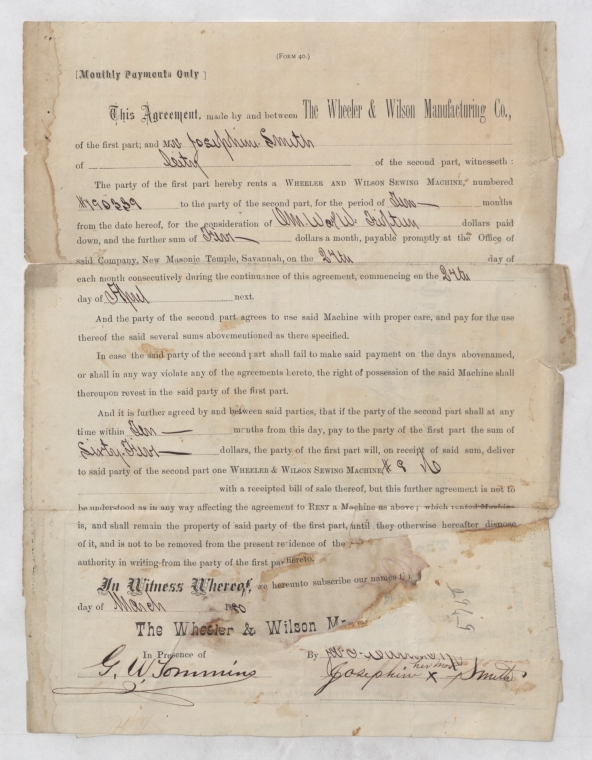 (Form 40.)
[Monthly Payments Only]
This Agreement, made by and between The Wheeler & Wilson Manufacturing Co.,
of the first part; and Mrs Josephine Smith
of City of the second part, witnesseth:
The party of the first part hereby rents a Wheeler and Wilson Sewing Machine, numbered
to the party of the second part, for the period of Ten months
from the date hereof, for the consideration of Fifteen dollars paid
down, and the further sum of Five dollars a month, payable promptly at the Office of
said Company, New Masonic Temple, Savannah, on the 24th day of
each month consecutively during the continuance of this agreement, commencing on the 24th
day of April next.
And the party of the second part agrees to use said Machine with proper care, and pay for the use
thereof the said several sums abovementioned as there specified.
In case the said party of the second part shall fail to make said payment on the days abovenamed,
or shall in any way violate any of the agreements hereto, the right of possession of the said Machine shall
thereupon revest in the said party of the first part.
And it is further agreed by and between said parties, that if the party of the second part shall at any
time within Ten months from this day, pay to the party of the first part the sum of
Sixty-Five dollars, the party of the first part will, on receipt of said sum, deliver
to said party of the second part one Wheeler & Wilson Sewing Machine, # 8
with a receipted bill of sale thereof, but this further agreement is not to
be understood as in any way affecting the agreement to Rent a Machine as above; which rented Machine
is, and shall remain the property of said party of the first part, until they otherwise hereafter dispose
of it, and is not to be removed from the present residence of the
authority in writing from the party of the first part hereto.
In Witness Whereof, we hereunto subscribe our names
day of March 1880
The Wheeler & Wilson
In Presence of By
G. W. Tommins
her mark
Josephine x Smith